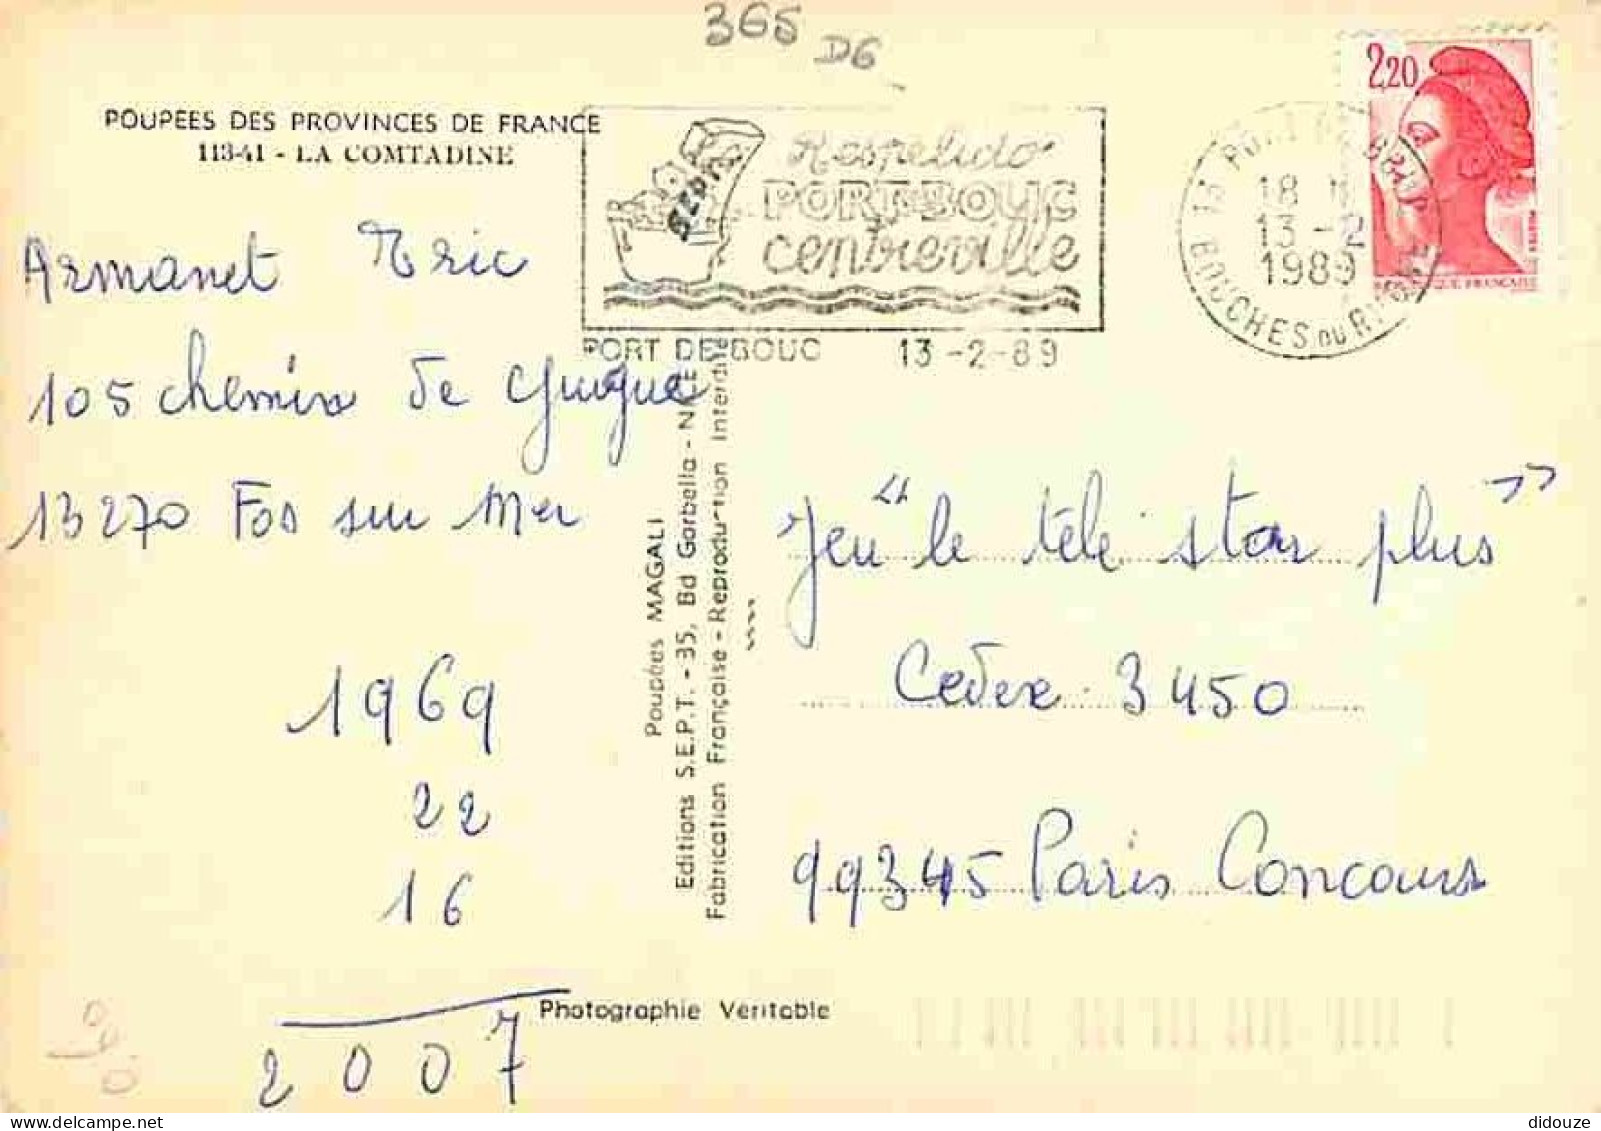 365
D6
POUPEES DES PROVINCES DE FRANCE
113-41 - LA COMTADINE
Respelido
PORT DE BOUC
centreville
PORT DE BOUC 13-2-89
13 PORT DE BOUC
18 H
13 -2
1989
BOUCHES DU RHONE
2,20
REPUBLIQUE FRANÇAISE
Armanet Eric
105 chemin de Guigue
13270 Fos sur Mer
1969
22
16
2007
Poupées MAGALI
Editions S.E.P.T. - 35, Bd Gorbella - NICE
Fabrication Française - Reproduction Interdite
Jeu "le télé star plus"
Cedex 3450
99345 Paris Concours
Photographie Véritable
didouze